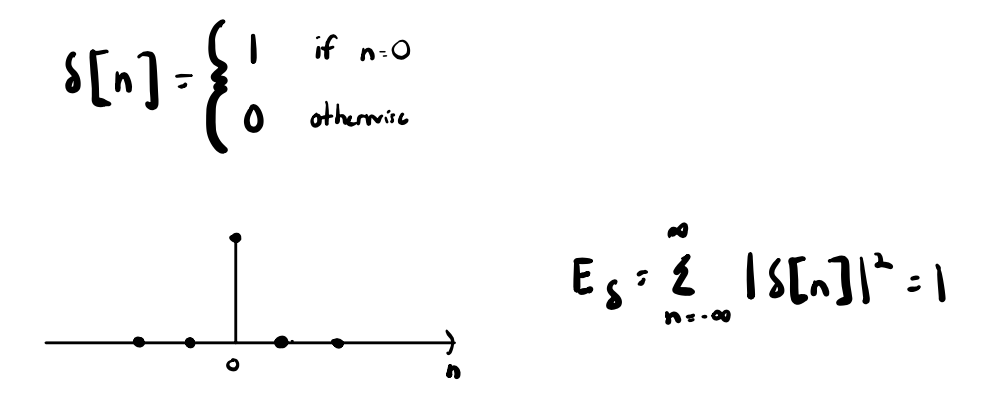 δ[n] = { 1 if n=0
0 otherwise
E_δ = ∑_{n=-∞}^{∞} |δ[n]|² = 1
0
n